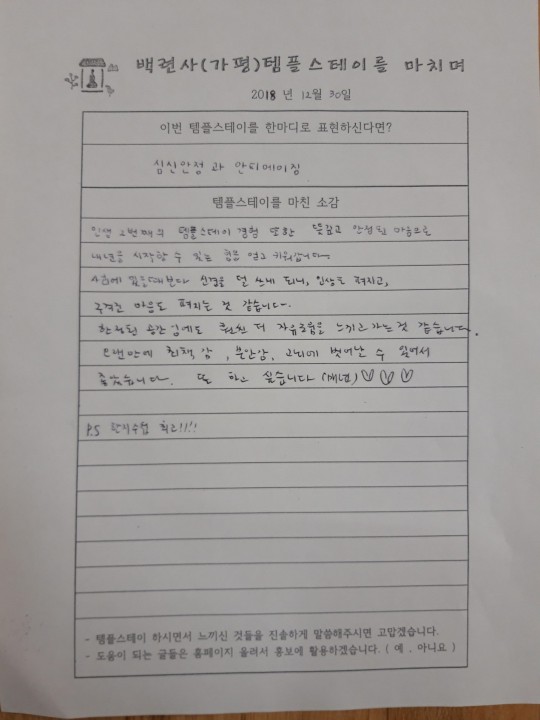 백련사(가평)템플스테이를 마치며
2018 년 12월 30일
이번 템플스테이를 한마디로 표현하신다면?
심신안정 과 안티에이징
템플스테이를 마친 소감
인생 2번째의 템플스테이 경험 또한 뜻깊고 안정된 마음으로
새년을 시작할 수 있는 힘을 얻고 키워갑니다.
신경을 덜 쓰게 되니, 인상도 펴지고,
구겨준 마음도 펴지는 것 같습니다.
한정된 공간 임에도 훨씬 더 자유로움을 느끼고 가는 것 같습니다.
오랜만에 죄책감, 불안감, 고민에 벗어날 수 있어서
좋았습니다. 또 하고 싶습니다 (매년) ♡ ♡ ♡
P.S 최고!!!!
- 템플스테이 하시면서 느끼신 것들을 진솔하게 말씀해주시면 고맙겠습니다.
- 도움이 되는 글들은 홈페이지 올려서 홍보에 활용하겠습니다. ( 예 , 아니요 )